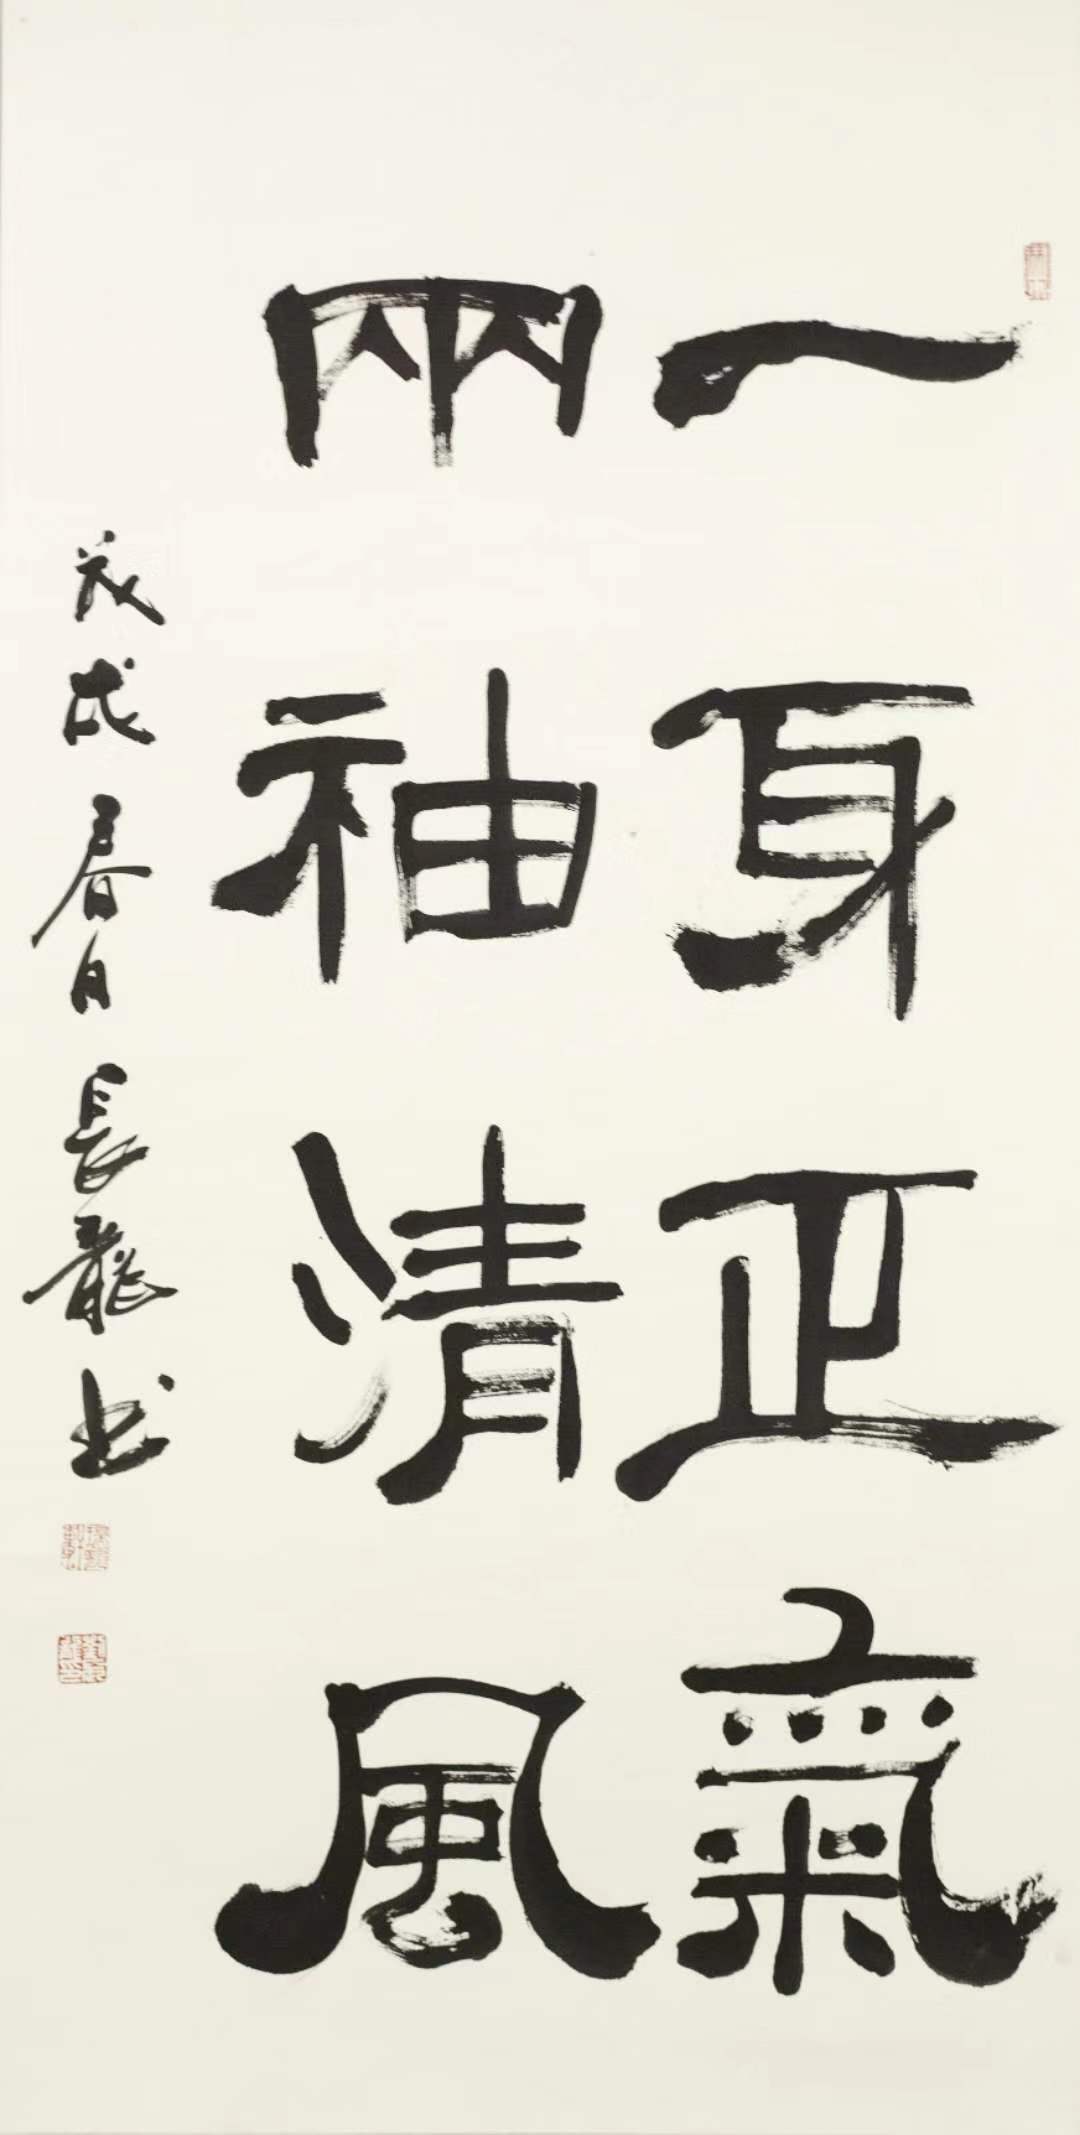 一身正氣
兩袖清風
戊戌春月長龍书